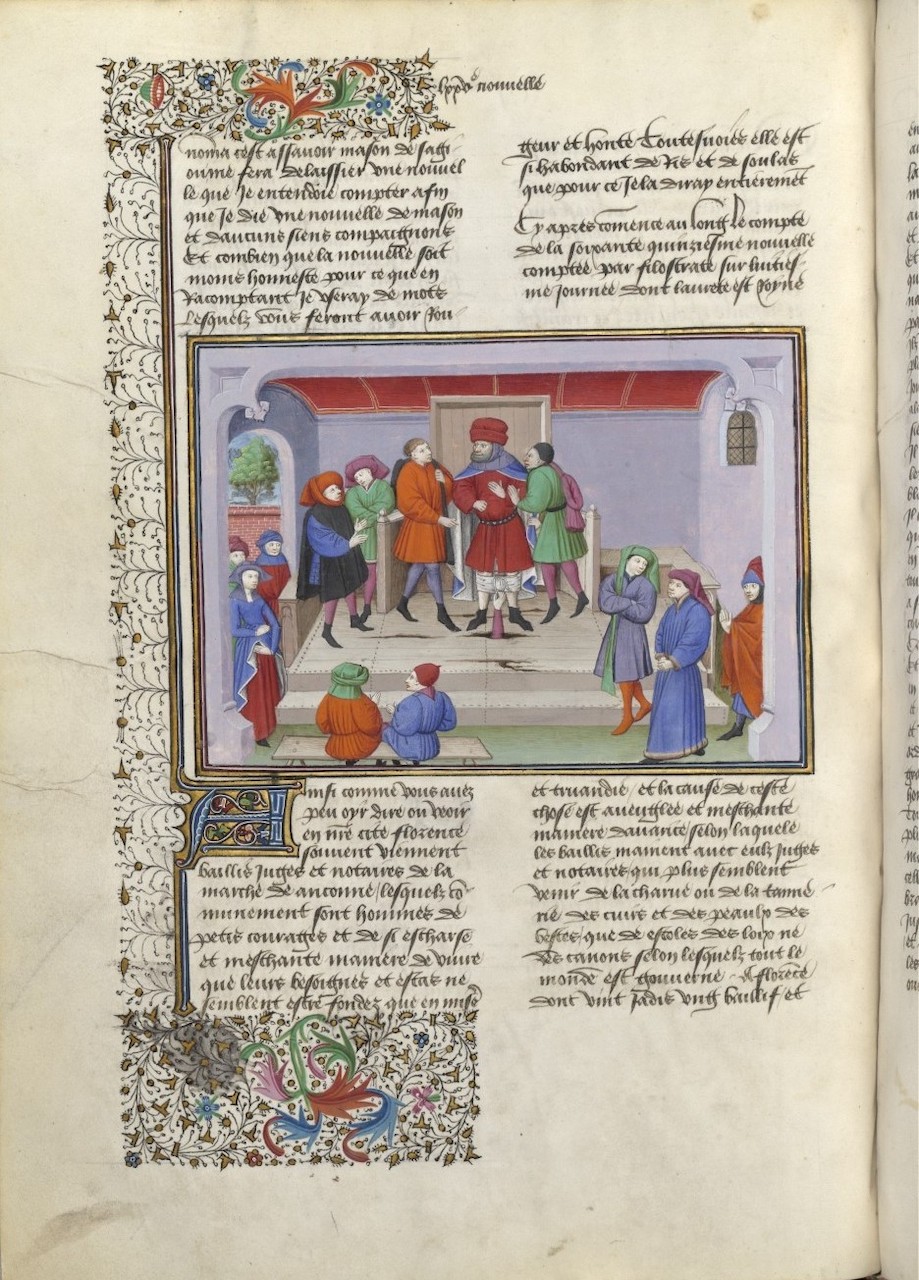 lxxv^e nouvelle
noma cest assavoir mason de sagi-
oume fera delaissier une nouvel
le que Je entendoie compter afin
que Je die une nouvelle de mason
et daucuns siens compaignons
Et combien que la nouvelle soit
moins honneste pour ce que en
Racomptant Je useray de mots
Lesquelz vous feront avoir Rou
geur et honte Toutesvoies elle est
si habondant de Ris et de soulas
que pour ce Je la diray entierement
Cy apres comence au long Le compte
de la soixante quinziesme nouvelle
comptee par filostrate sur huities-
me Journee dont laurete est Royne
Ainsi comme vous avez
peu oyr dire ou veoir
en nre cite florence
souvent viennent
baillis Juges et notaires de la
marche de anconne lesquelz co-
munement sont hommes de
petis courages et de si escharse
et meschante maniere de vivre
que leurs besoignes et estas ne
semblent estre fondez que en mise
et truandie et la cause de ceste
chose est aveuglee et meschante
maniere davarice selon laquele
les baillis mainent avec eulx Juges
et notaires qui plus semblent
venir de la charue ou de la tanne-
rie des cuirs et des peaulx des
bestes que de escoles des loix ne
des canons selon lesquelz tout le
monde est gouverne A florence
dont vint Jadis ung baillif et